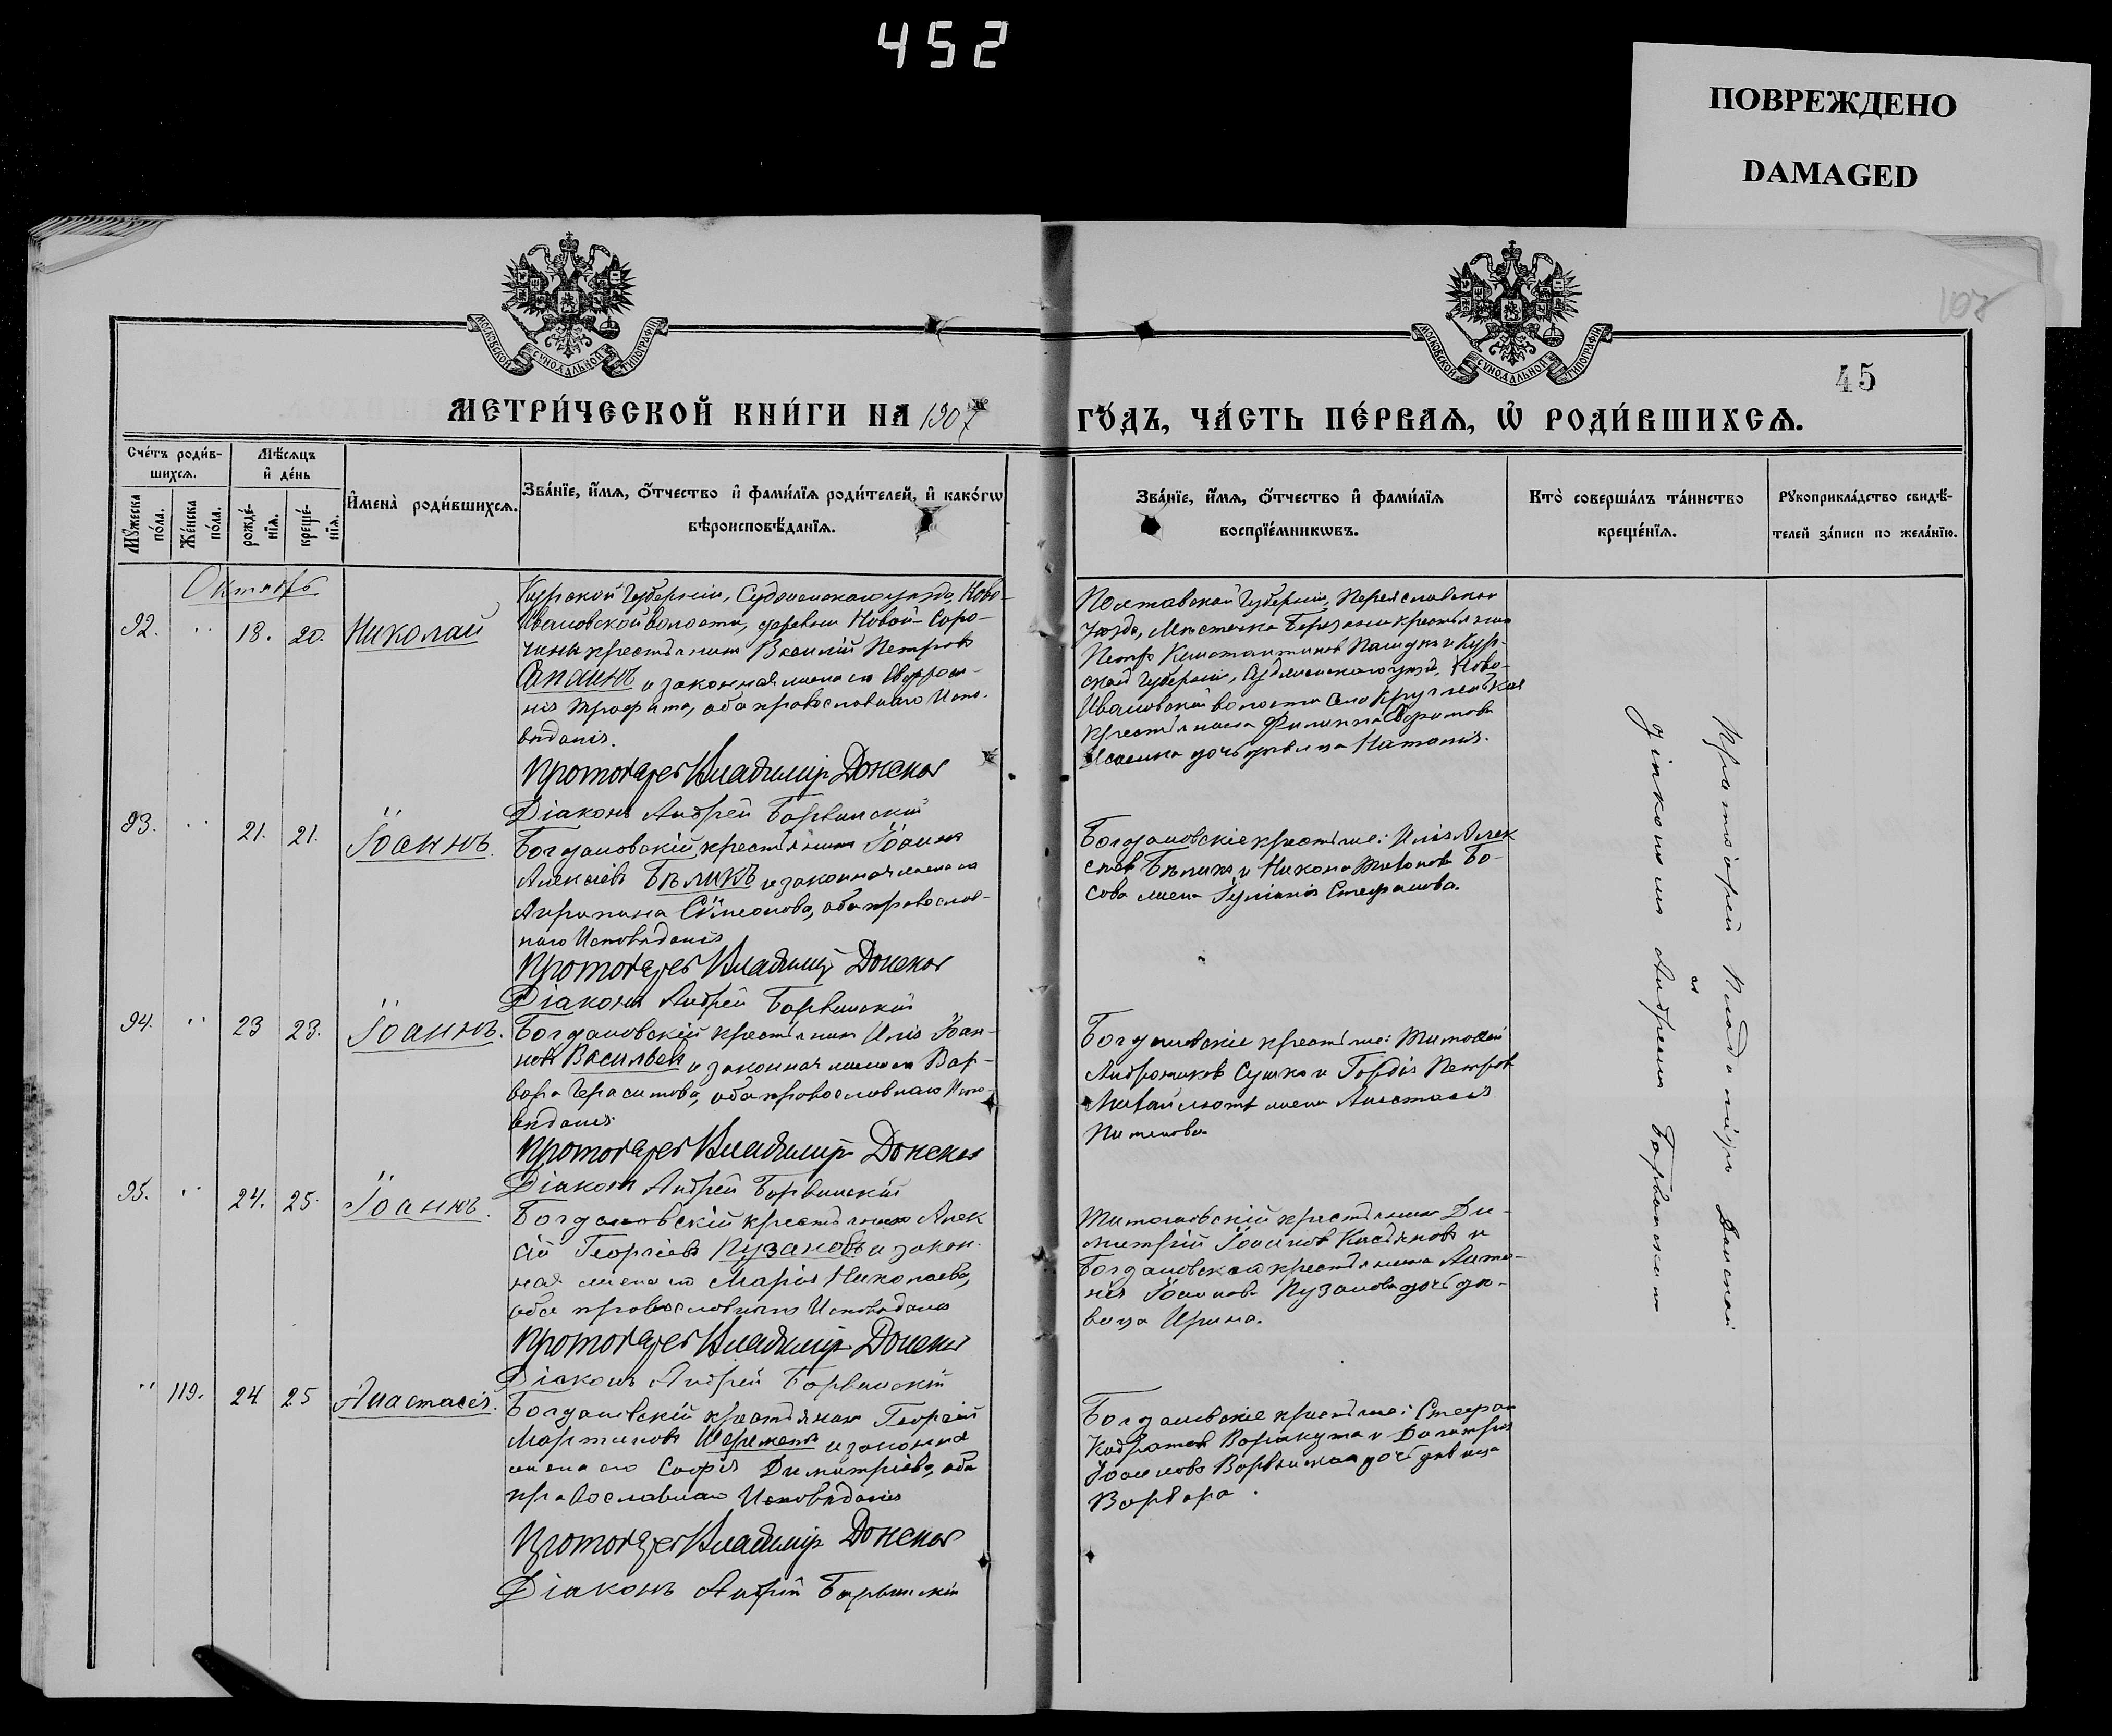 452
ПОВРЕЖДЕНО
DAMAGED
107
45
МОСКОВСКОЙ СѴНОДАЛЬНОЙ ТИПОГРАФІИ
МОСКОВСКОЙ СѴНОДАЛЬНОЙ ТИПОГРАФІИ
МЕТРИ́ЧЕСКОЙ КНИ́ГИ НА 1907
ГО́ДЪ, ЧА́СТЬ ПЕ́РВАѦ, Ѡ҆ РОДИ́ВШИХСѦ.
Сче́тъ роди́в-
шихсѧ.
Мꙋ́жеска по́ла.
Же́нска по́ла.
Мѣ́сѧцъ
и҆ де́нь
рожде́-
нїѧ.
креще́-
нїѧ.
И҆мена̀ роди́вшихсѧ.
Зва́нїе, и҆́мѧ, ѻ҆́тчество и҆ фами́лїѧ роди́телей, и҆ како́гѡ
вѣроисповѣ́данїѧ.
Зва́нїе, и҆́мѧ, ѻ҆́тчество и҆ фами́лїѧ
воспрїе́мникѡвъ.
Кто̀ соверша́лъ та́инство
креще́нїѧ.
Рꙋкоприкла́дство свидѣ́-
телей за́писи по жела́нїю.
Октябрь
92. " 18. 20. Николай
Курской Губерніи, Суджанскаго уезда, Ново-
Ивановской волости, деревни Новой-Соро-
чины крестьянинъ Василій Петровъ
и законная жена его Евфроси-
нія Трофима, оба православнаго Испо-
вѣданія.
Протоіерей Владиміръ Донской
Діаконъ Андрей Борвинскій
Полтавской Губерніи, Переяславскаго
уезда, Местечка Березани крестьянинъ
Петръ Константиновъ и Кур-
ской Губерніи, Суджанскаго уезда, Ново-
Ивановской волости Села
крестьянина Филиппа
дочь девица Наталія.
93. " 21. 21. Іоаннъ.
Богдановскій крестьянинъ Іоаннъ
Алексіевъ Бѣликъ и законная жена его
Агрипина Сѵмеонова, оба православ-
наго Исповѣданія
Протоіерей Владиміръ Донской
Діаконъ Андрей Борвинскій
Богдановскіе крестьяне: Илія Алек
сіевъ Бѣликъ и Никона Тихонова Бо-
сова жена Іуліанія Стефанова.
94. " 23 23. Іоаннъ.
Богдановскій крестьянинъ Илія Іоан-
новъ Васильевъ и законная жена его Вар-
вара Герасимова, оба православнаго Испо-
вѣданія
Протоіерей Владиміръ Донской
Діаконъ Андрей Борвинскій
Богдановскіе крестьяне: Тимофей
Андрониковъ Сушко и Гордія Петрова
жена Анастасія
95. " 24. 25. Іоаннъ.
Богдановскій крестьянинъ Алек
сій Георгіевъ Пузановъ и закон-
ная жена его Марія Николаева,
оба православнаго Исповѣданія
Протоіерей Владиміръ Донской
Діаконъ Андрей Борвинскій
крестьянинъ Ди-
митрій Іоанновъ Касьяновъ и
Богдановскаго крестьянина Анто-
нія Іоаннова Пузанова дочь де-
вица Ирина.
" 119. 24 25 Анастасія.
Богдановскій крестьянинъ Георгій
Мартиновъ Шереметъ и законная
жена его Софія Димитріева, оба
православнаго Исповѣданія
Протоіерей Владиміръ Донской
Діаконъ Андрей Борвинскій
Богдановскіе крестьяне: Стефанъ
Кодратовъ и Димитрія
Іоаннова дочь девица
Варвара.
Протоіерей Владиміръ Донской
съ
діакономъ Андреемъ Борвинскимъ